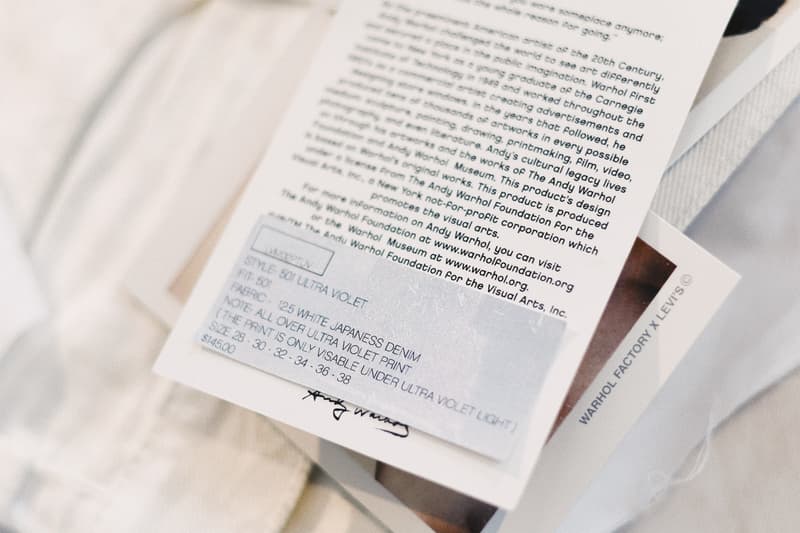 were someplace anymore;
the whole reason for going."
the preeminent American artist of the 20th Century,
Andy Warhol challenged the world to see art differently
place in the public imagination. Warhol first
New York as a young graduate of the Carnegie
of Technology in 1949 and worked throughout the
commercial artist creating advertisements and
magazine storylines. In the years that followed, he
tens of thousands of artworks in every possible
painting, drawing, printmaking, film, video,
and even literature. Andy's cultural legacy lives
through his artworks and the works of The Andy Warhol
and Andy Warhol Museum. This product's design
is based on Warhol's original works. This product is produced
under a license from The Andy Warhol Foundation for the
Visual Arts, Inc., a New York not-for-profit corporation which
promotes the visual arts.
For more information on Andy Warhol, you can visit
The Andy Warhol Foundation at www.warholfoundation.org
or the Warhol Museum at www.warhol.org.
The Andy Warhol Foundation for the Visual Arts, Inc.
STYLE: 501 ULTRA VIOLET
FIT: 501
FABRIC - 12.5 WHITE JAPANESS DENIM
NOTE: ALL OVER ULTRA VIOLET PRINT
( THE PRINT IS ONLY VISABLE UNDER ULTRA VIOLET LIGHT )
SIZE 28 - 30 - 32 - 34 - 36 - 38
$145.00
Andy Warhol
WARHOL FACTORY X LEVI'S ©